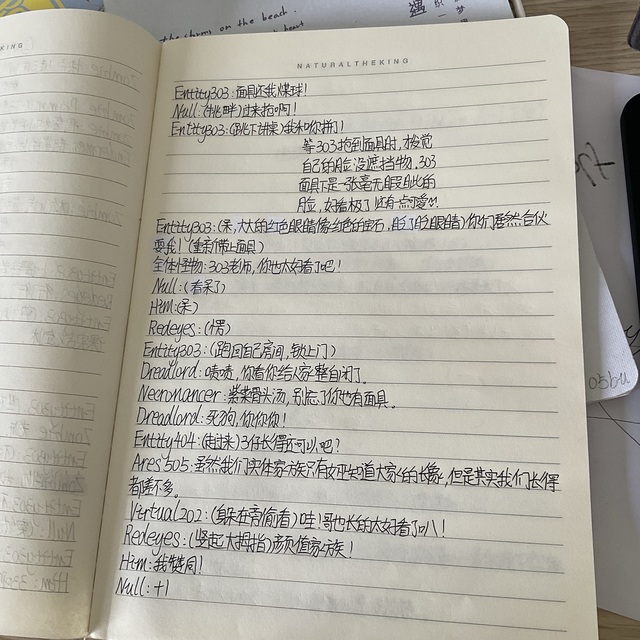 the shrms on the beach.
heart
KING
NATURALTHEKING
Entity303:面具还我煤球!
Null:(挑衅)过来抢啊!
Entity303:(跳下讲桌)我和你拼了!
等303抢到面具时,惊觉
自己的脸没遮挡物,303
面具下是一张毫无瑕疵的
脸,好看极了还有点可爱
Entity303:(呆,大大的红色眼睛像红色的宝石,眨了眨眼睛)你们居然合伙
耍我!(重新带上面具)
全体怪物:303老师,你也太好看了吧!
Null:(看呆了)
Him:(呆)
Redeyes:(愣)
Entity303:(跑回自己房间,锁上门)
Dreadlord:啧啧,你看你给人家整自闭了。
Necromancer:紫菜骨头汤,别忘了你也有面具。
Dreadlord:死狗,你你你!
Entity404:(走过来)3仔长得还可以吧?
Ares505:虽然我们实体家族只有女巫知道大家的长像,但是其实我们长得
都差不多。
Virtual202:(躲在旁偷看)哇!哥也长的太好看了八!
Redeyes:(竖起大拇指)颜值家族!
Him:我赞同!
Null:+1